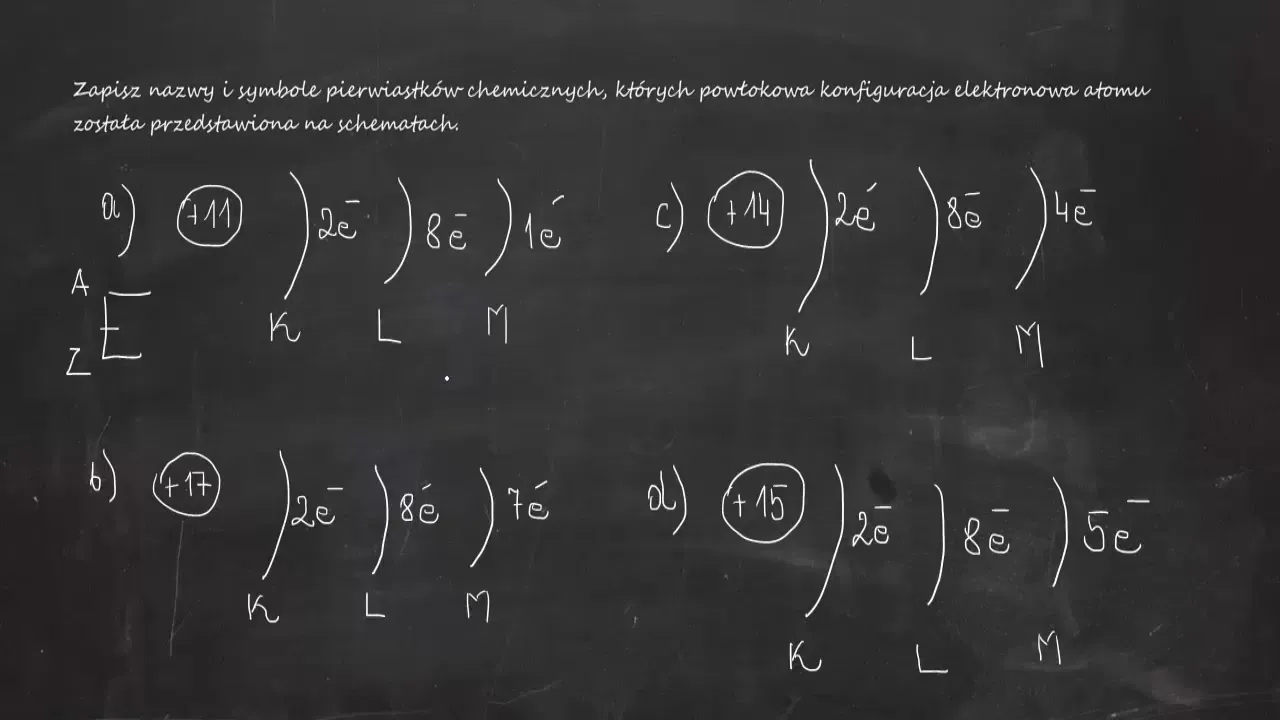 Zapisz nazwy i symbole pierwiastków chemicznych, których powłokowa konfiguracja elektronowa atomu
została przedstawiona na schematach.
a) +11 ) 2e⁻ ) 8e⁻ ) 1e⁻
K L M
A
Z E
c) +14 ) 2e⁻ ) 8e⁻ ) 4e⁻
K L M
b) +17 ) 2e⁻ ) 8e⁻ ) 7e⁻
K L M
d) +15 ) 2e⁻ ) 8e⁻ ) 5e⁻
K L M